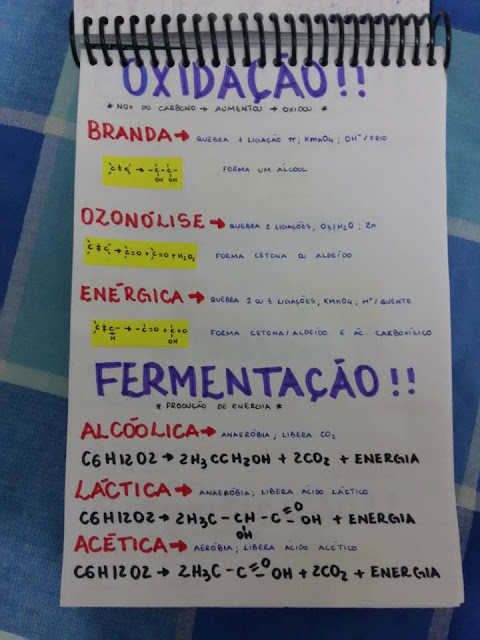 OXIDAÇÃO!!
* NOX DO CARBONO → AUMENTOU → OXIDOU *
BRANDA → QUEBRA 1 LIGAÇÃO π, KMnO4; OH⁻/FRIO
C≠C → -C-C- FORMA UM ÁLCOOL
OH OH
OZONÓLISE → QUEBRA 2 LIGAÇÕES, O3/H2O; Zn
C≠C → C=O + C=O + H2O2 FORMA CETONA OU ALDEÍDO
ENÉRGICA → QUEBRA 2 OU 3 LIGAÇÕES, KMnO4; H⁺/QUENTE
C≠C- → -C=O + C=O FORMA CETONA/ALDEÍDO E ÁC. CARBOXÍLICO
H OH
FERMENTAÇÃO!!
* PRODUÇÃO DE ENERGIA *
ALCÓOLICA → ANAERÓBIA; LIBERA CO2
C6H12O2 → 2H3CCH2OH + 2CO2 + ENERGIA
LÁCTICA → ANAERÓBIA; LIBERA ÁCIDO LÁCTICO
C6H12O2 → 2H3C-CH-C=O-OH + ENERGIA
OH
ACÉTICA → AERÓBIA; LIBERA ÁCIDO ACÉTICO
C6H12O2 → 2H3C-C=O-OH + 2CO2 + ENERGIA